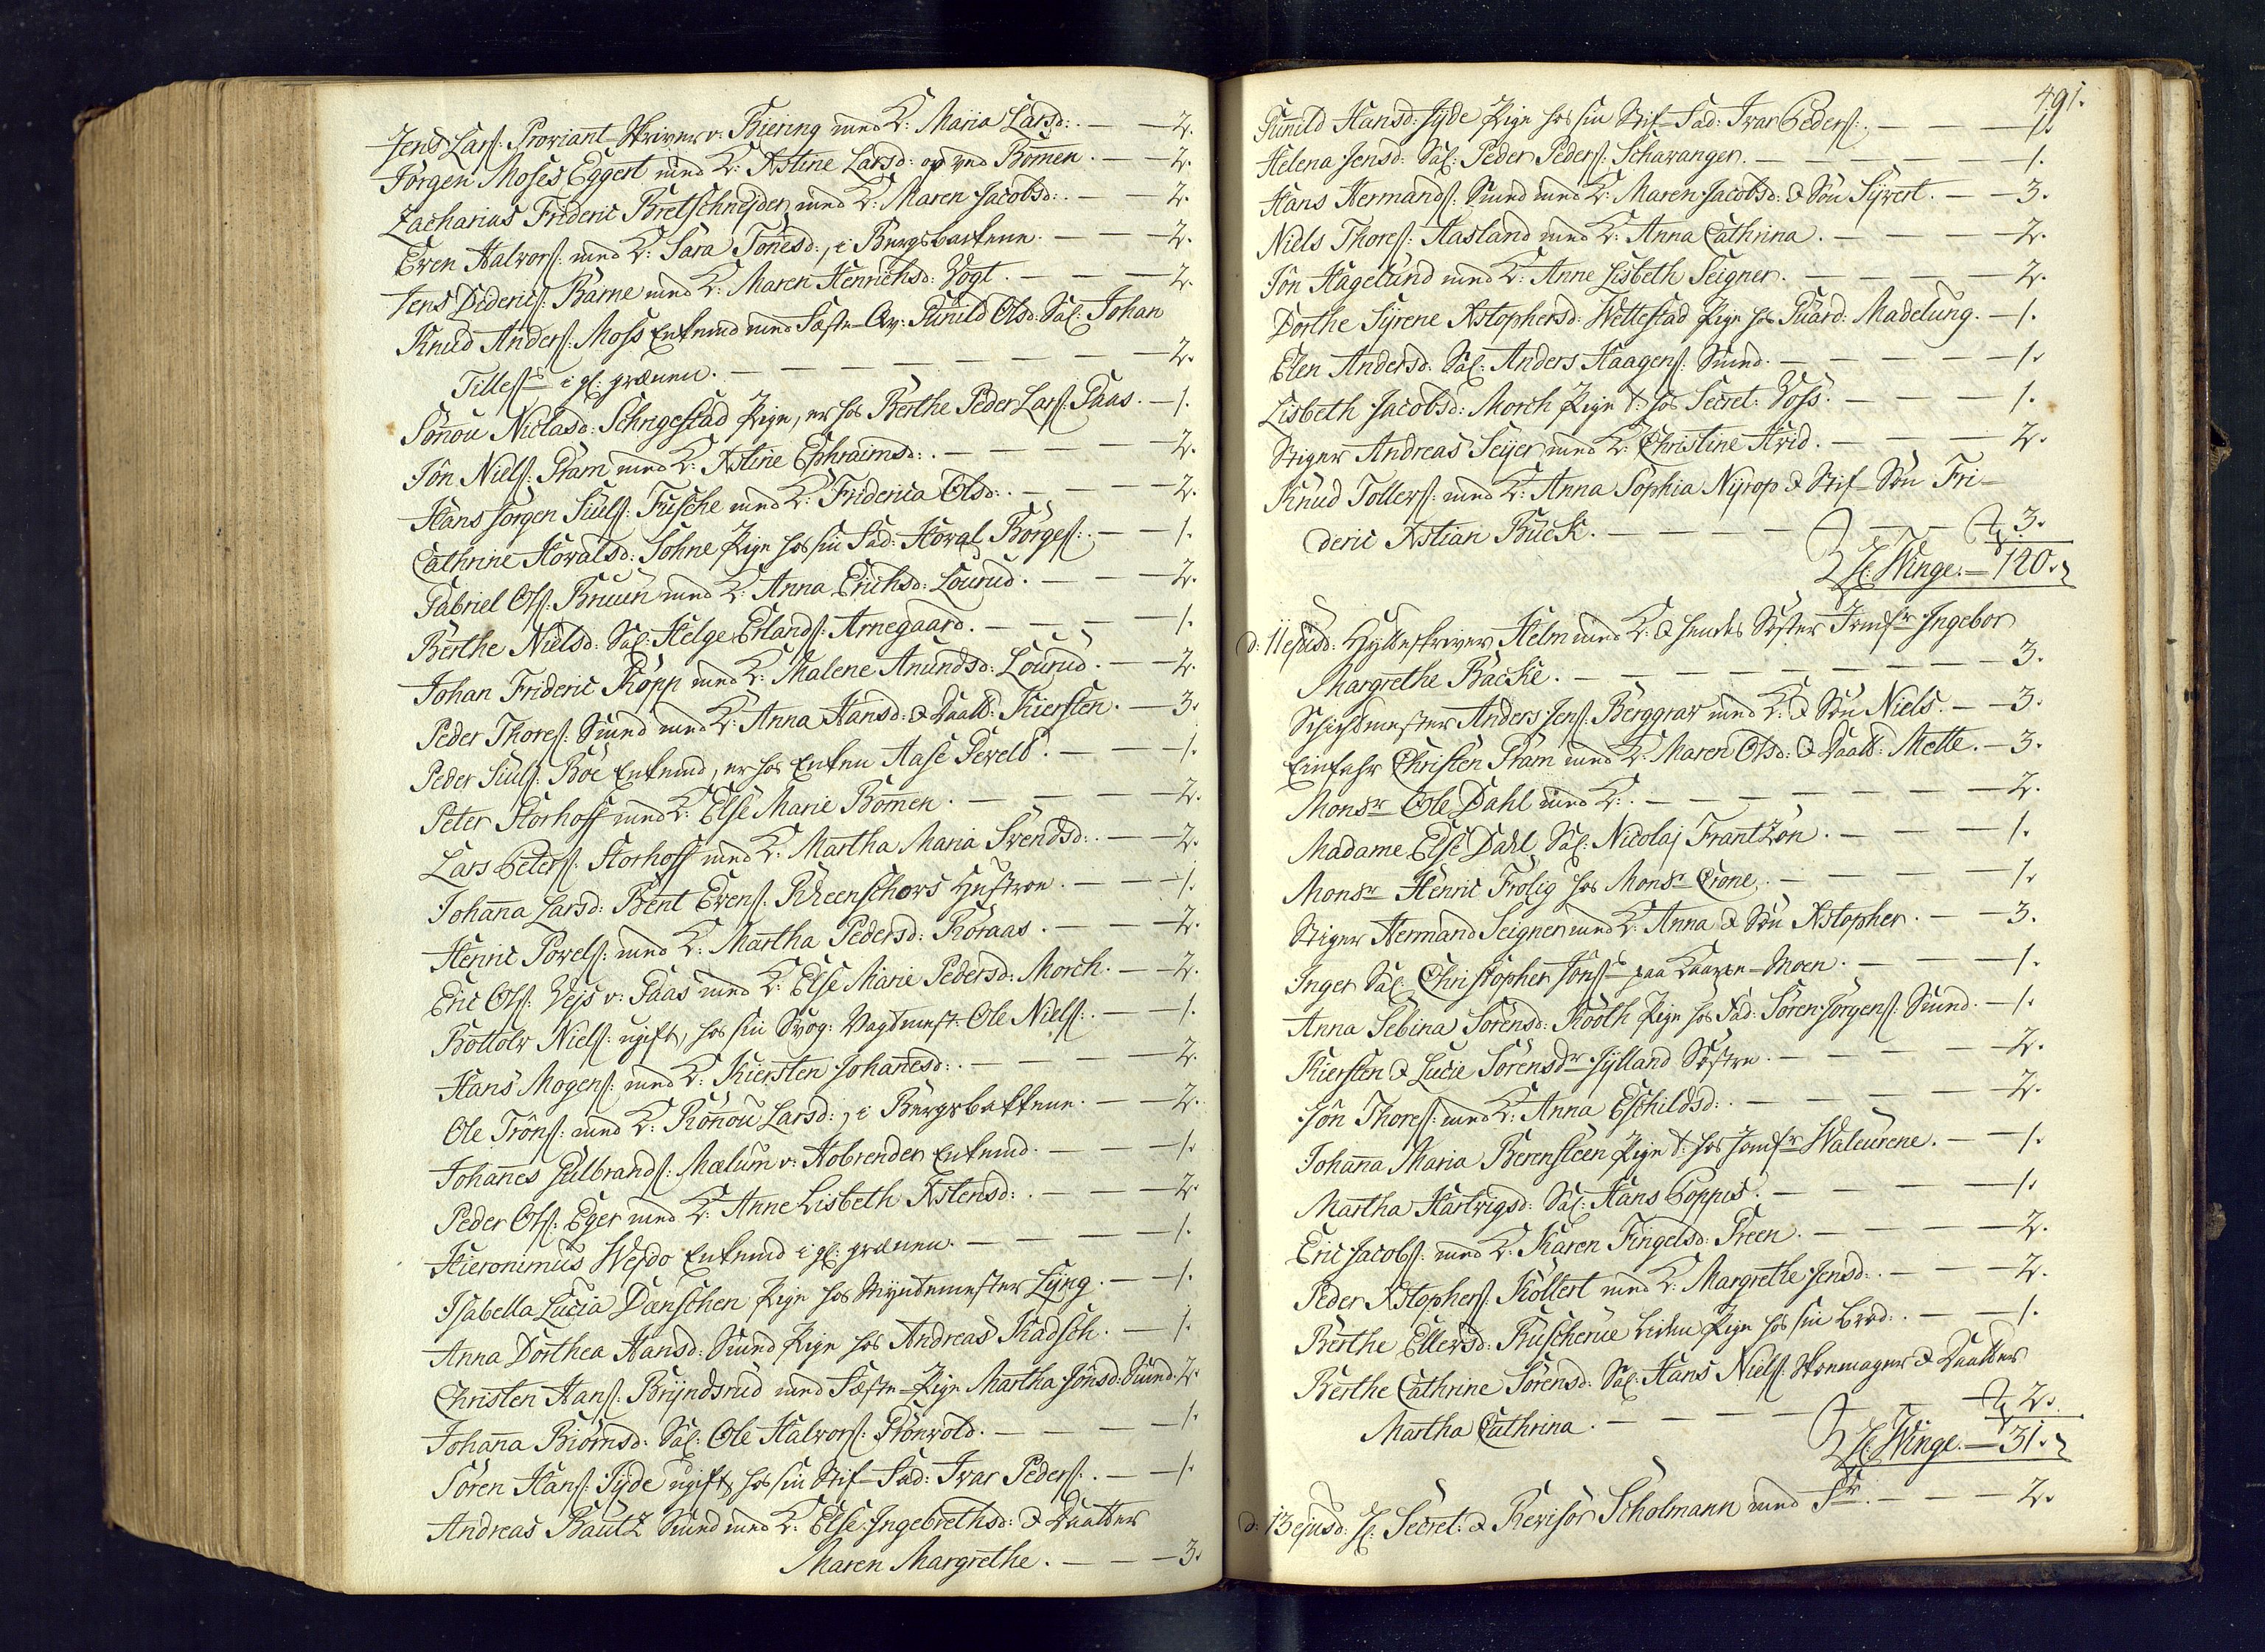 Jens Lars: Proviant-Skriver v: Biering med K: Maria Larsd: . — — 2.
Jörgen Moses Eggert med K: Kstine Larsd: op ved Bom̄en . — — 2.
Zacharias Frideric Bretschneider med K: Maren Jacobsd: . — — 2.
Even Halvors: med K: Sara Ton̄esd:, i Bergsbakkene . — — 2.
Jens Dideric: Barne med K: Maren Henrichsd: Vogt . — — 2.
Knud Anders: Moss Enkemd med Fæste-Qv: Gunild Olsd: Sal: Johan
Tilless: i gl: grænen . — — — — — — 2.
Son̄ou Niclasd: Schrigestad Pige, er hos Berthe Peder Lars: Gaas . — 1.
Jón Niels: Gram med K: Kstine Ephraimsd: . — — — — 2.
Hans Jorgen Siuls: Fusche med K: Friderica Olsd: . — — — 2.
Cathrine Hovalsd: Sohne Pige hos sin Fad: Hoval Börges: . — 1.
Gabriel Ols: Bruun med K: Anna Erichsd: Lourud . — — — 2.
Berthe Nielsd: Sal: Helge Erlands: Arnegaard . — — — — 1.
Johan Frideric Kopp med K: Malene Amundsd: Lourud . — — 2.
Peder Thores: Smed med K: Anna Hansd: & Daatt: Kiersten . — 3.
Peder Siuls: Böe Enkemd, er hos Enken Aase Pevels . — — — 1.
Peter Storhoff med K: Else Marie Bom̄en . — — — — 2.
Lars Peters: Storhoff med K: Martha Maria Svendsd: . — — 2.
Johan̄a Larsd: Bent Evens: Kreenschors Hustroe . — — — 1.
Henric Povels: med K: Martha Pedersd: Roraas . — — — 2.
Eric Ols: Vejs v: Gaas med K: Else Marie Pedersd: Morch . — — 2.
Bottolv Niels: ugift, hos sin Svog: Vagtmest: Ole Niels: . — — 1.
Hans Mogens: med K: Kiersten Johan̄esd: . — — — — 2.
Ole Tröns: med K: Rön̄ou Larsd:, i Bergsbakkene . — — 2.
Johan̄es Gulbrands: Mælum v: Hobrenden Enkemd . — — — 1.
Peder Ols: Eger med K: Anne Lisbeth Kstensd: . — — — 2.
Hieronimus Wesdo Enkemd i gl: grænen . — — — — 1.
Isabella Lucia Danschen Pige hos Myntmester Lyng . — — 1.
Anna Dorthea Hansd: Smed Pige hos Andreas Kadsch . — — 1.
Christen Hans: Bryndsrud med Fæste-Pige Martha Jónsd: Smed . 2.
Johan̄a Biörnsd: Sal: Ole Halvors: Grönvold . — — — — 1.
Sören Hans: Jyde ugift, hos sin Stif-Fad: Ivar Peders: . — — 1.
Andreas Bautz Smed med K: Else Ingebrethsd: & Daatter
Maren Margrethe . — — — 3.
491.
Gunild Hansd: Jyde Pige hos sin Stif-Fad: Ivar Peders: . — — — 1.
Helena Jensd: Sal: Peder Peders: Schavanger . — — — — — 1.
Hans Hermands: Smed med K: Maren Jacobsd: & Sön Syvert . — — 3.
Niels Thores: Aasland med K: Anna Cathrina . — — — — 2.
Jón Hagelund med K: Anne Lisbeth Seigner . — — — — 2.
Dorthe Syrene Kstophersd: Wettestad Pige hos Guard: Madelung . — 1.
Elen Andersd: Sal: Anders Haagens: Smed . — — — — — 1.
Lisbeth Jacobsd: Morch Pige t: hos Secret: Voss . — — — 1.
Stiger Andreas Seyer med K: Christine Hvid . — — — 2.
Knud Tollers: med K: Anna Sophia Nyrop & Stif-Sön Fri-
deric Kstian Buck . — — — — — — 3.
H: Winge . — 120.
d: 11 ejusd: Hytteskriver Helm med K: & hendes Söster Jomfr Ingebor
Margrethe Backe . — — — — — — — 3.
Schichtmester Anders Jens: Berggrav med K: & Sön Niels . — — 3.
Einfahr Christen Gram med K: Maren Olsd: & Daatt: Mette . — 3.
Monsr Ole Dahl med K: . — — — — — — — 2.
Madame Else Dahl Sal: Nicolaj Frantzön . — — — — 1.
Monsr Henric Frölig hos Monsr Crone . — — — — — 1.
Stiger Hermand Seigner med K: Anna & Sön Kstopher . — — 3.
Inger Sal: Christopher Jóns: paa Lauven-Moen . — — — 1.
Anna Sebina Sörensd: Kooth Pige hos Fad: Sören Jörgens: Smed . — 1.
Kiersten & Lucie Sörensdr Jylland Söstre . — — — — 2.
Jón Thores: med K: Anna Eschildsd: . — — — — — 2.
Johan̄a Maria Berensteen Pige t: hos Jomfr Waleurene . — — 1.
Martha Hartvigsd: Sal: Hans Poppis . — — — — — 1.
Eric Jacobs: med K: Karen Fingelsd: Green . — — — — 2.
Peder Kstophers: Köllert med K: Margrethe Jensd: . — — — 2.
Berthe Ellevsd: Buschenie liden Pige hos sin Brod: . — — — 1.
Berthe Cathrine Sörensd: Sal: Hans Niels: Skomager & Daatter
Martha Cathrina . — — — — — — 2.
H: Winge . — 31.
d: 13 ejusd: H: Secret: & Revisor Scholmann med Fr . — — — 2.